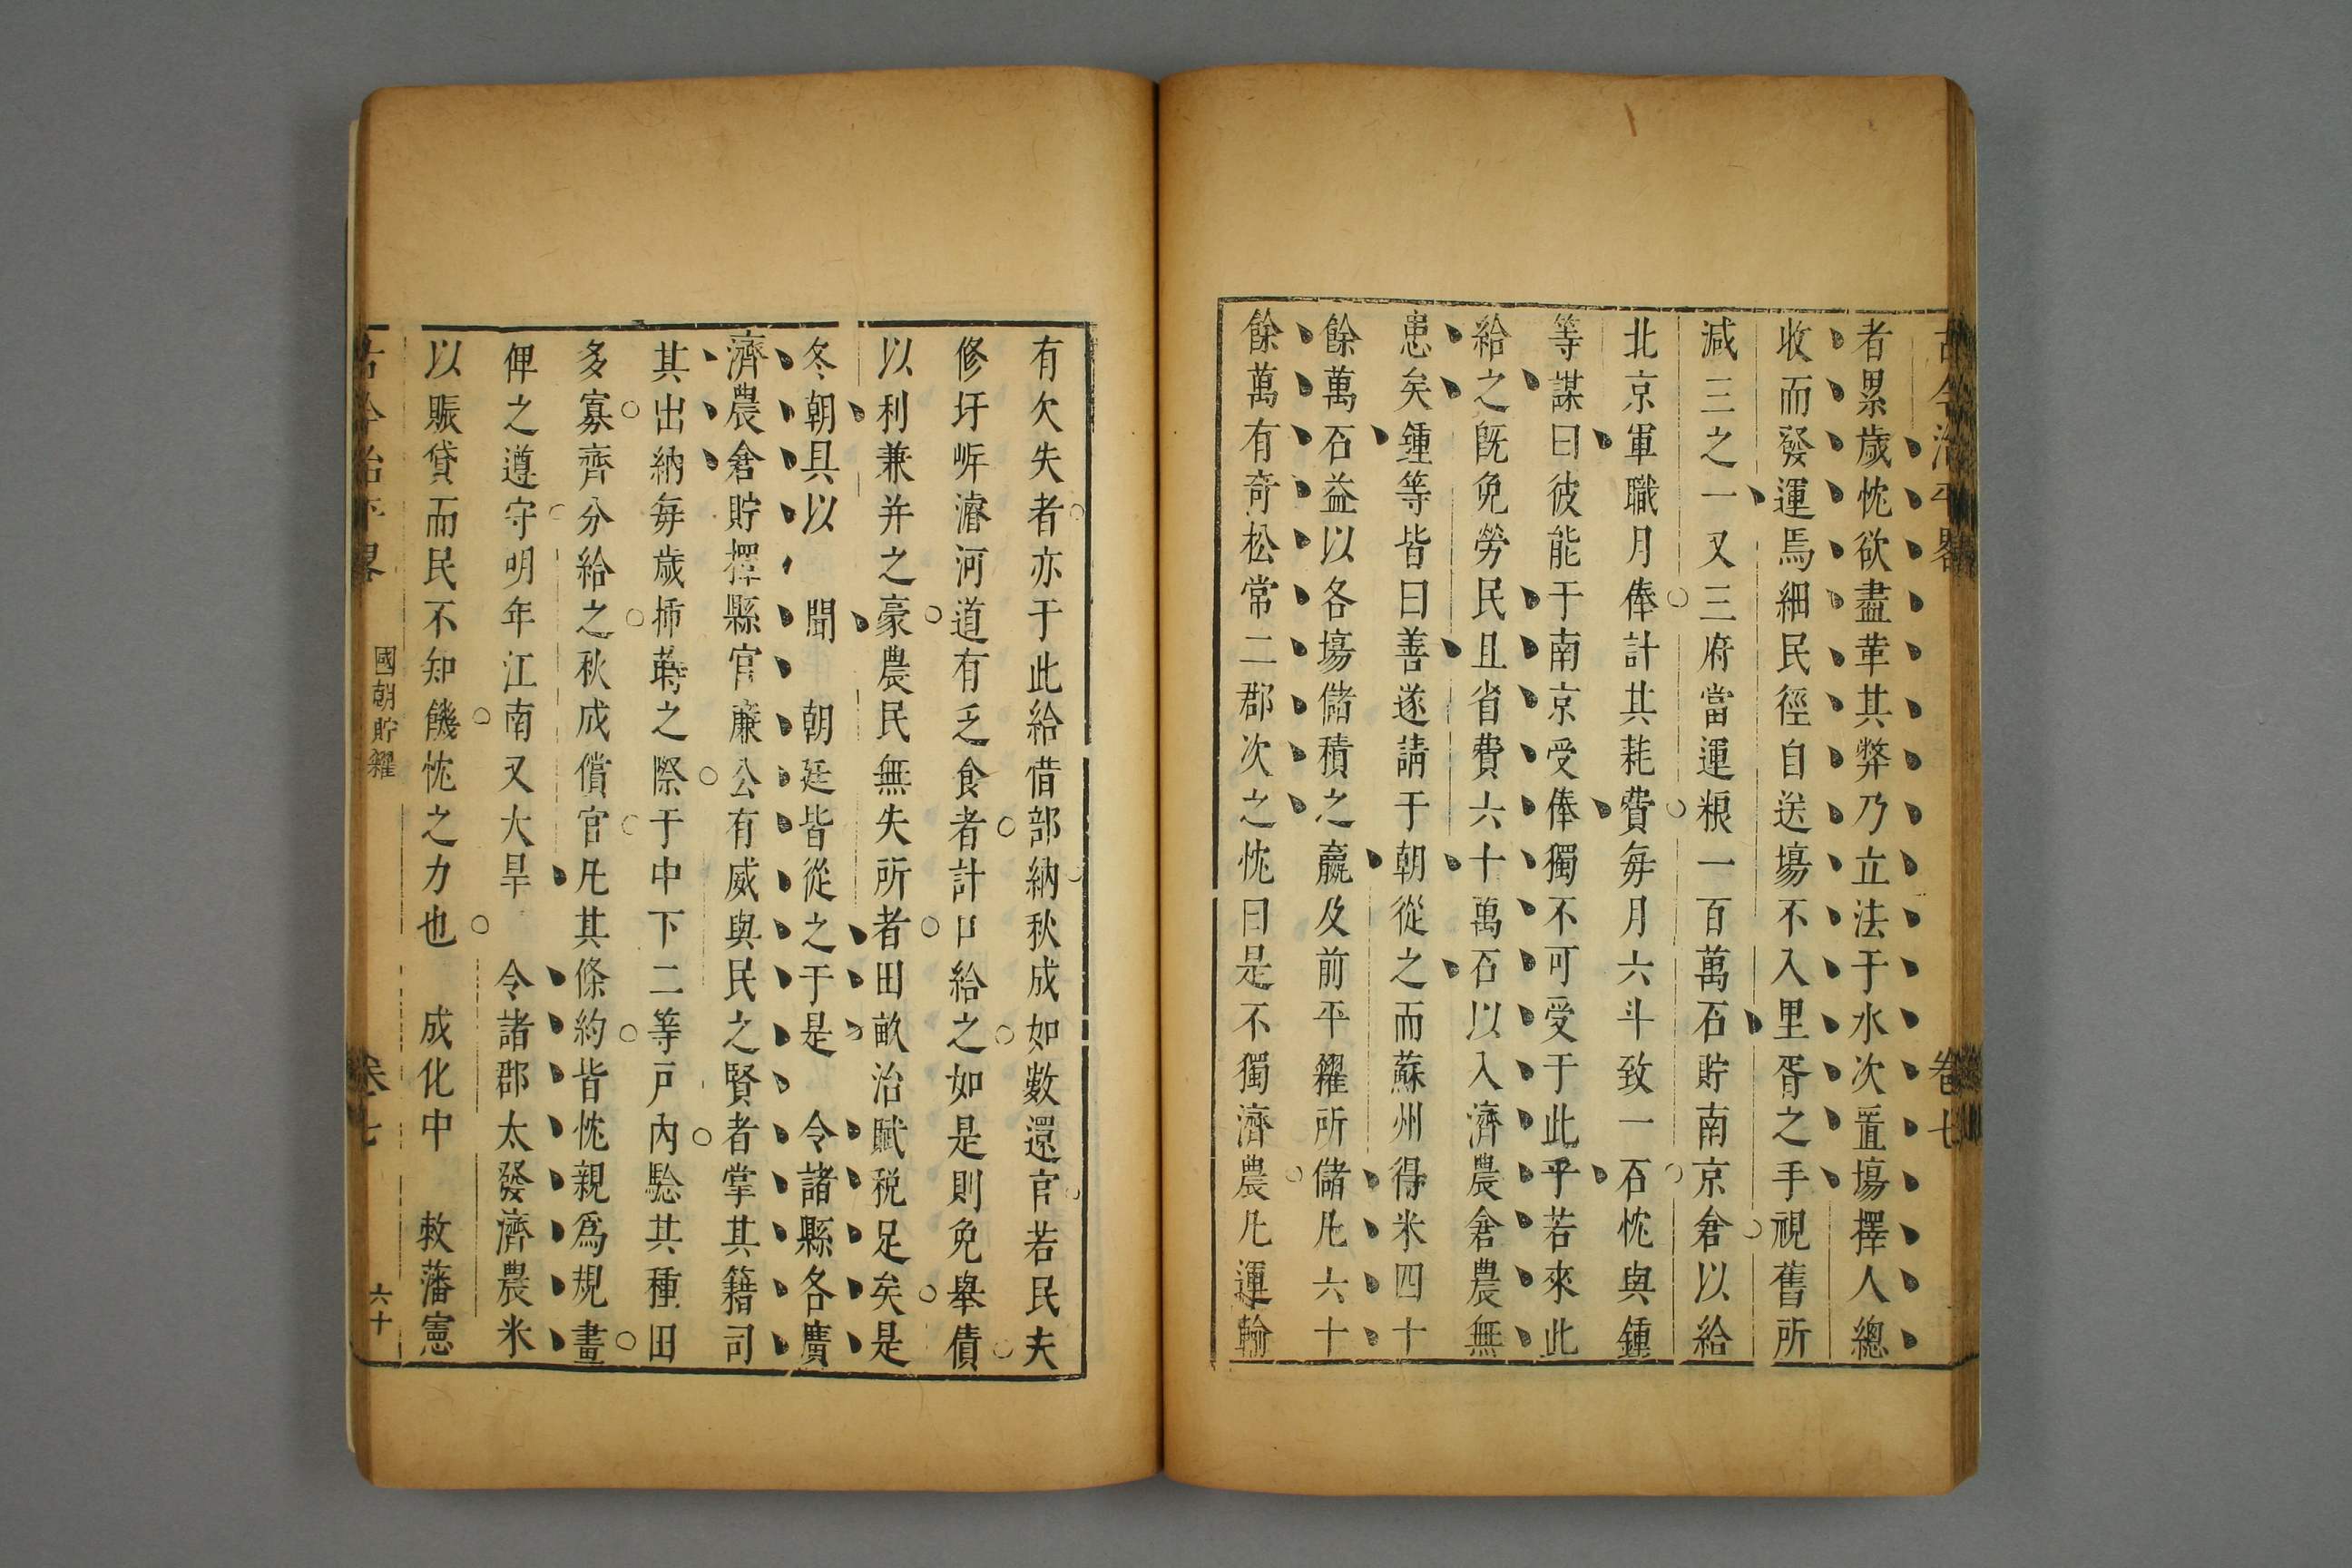 古今治平畧
卷七
者累歲忱欲盡革其弊乃立法于水次置塲擇人總
收而發運焉細民徑自送塲不入里胥之手視舊所
減三之一又三府當運粮一百萬石貯南京倉以給
北京軍職月俸計其耗費每月六斗致一石忱與鍾
等謀曰彼能于南京受俸獨不可受于此乎若來此
給之旣免勞民且省費六十萬石以入濟農倉農無
患矣鍾等皆曰善遂請于朝從之而蘇州得米四十
餘萬石益以各塲儲積之羸及前平糴所儲凡六十
餘萬有奇松常二郡次之忱曰是不獨濟農凡運輸
有欠失者亦于此給借部納秋成如數還官若民夫
修圩岸濬河道有乏食者計口給之如是則免舉債
以利兼并之豪農民無失所者田畝治賦稅足矣是
冬朝具以　聞　朝廷皆從之于是　令諸縣各廣
濟農倉貯擇縣官廉公有威與民之賢者掌其籍司
其出納每歲揷蒔之際于中下二等戸內驗其種田
多寡齊分給之秋成償官凡其條約皆忱親爲規畫
俾之遵守明年江南又大旱　令諸郡太發濟農米
以賑貸而民不知饑忱之力也　成化中　敕藩憲
古今治平畧
國朝貯糴
卷七
六十